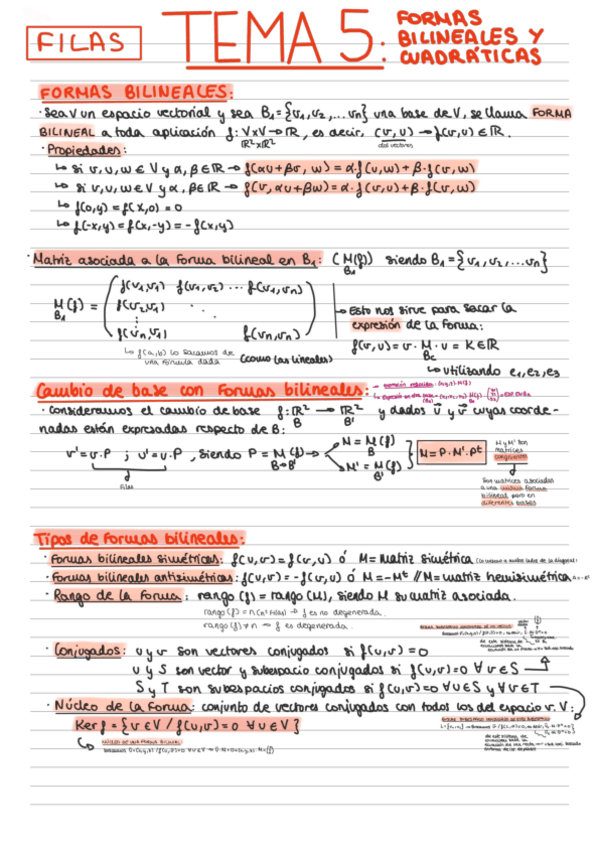 FILAS
TEMA 5: FORMAS BILINEALES Y CUADRÁTICAS
FORMAS BILINEALES:
· Sea V un espacio vectorial y sea B₁={v₁,v₂,...vₙ} una base de V, se llama FORMA
BILINEAL a toda aplicación f: V×V→ℝ, es decir, (v,u) → f(v,u) ∈ ℝ.
ℝ²×ℝ² dos vectores
· Propiedades:
↳ Si v,u,w ∈ V y α,β∈ℝ → f(αu+βv, w) = α·f(u,w)+β·f(v,w)
↳ Si v,u,w ∈ V y α,β∈ℝ → f(v, αu+βw) = α·f(v,u)+β·f(v,w)
↳ f(0,y) = f(x,0) = 0
↳ f(-x,y) = f(x,-y) = -f(x,y)
· Matriz asociada a la forma bilineal en B₁: (M(f)) siendo B₁={v₁,v₂,...vₙ}
B₁
f(v₁,v₁) f(v₁,v₂) ... f(v₁,vₙ)
M(f) = f(v₂,v₁)
B₁
f(vₙ,v₁) f(vₙ,vₙ)
→ Esto nos sirve para sacar la
expresión de la forma:
f(v,u) = v·M·u = K∈ℝ
Bc
↳ utilizando e₁,e₂,e₃
↳ f(a,b) lo sacamos de
una fórmula dada
(como las lineales)
Cambio de base con formas bilineales:
· Consideramos el cambio de base f: ℝ² → ℝ² y dados u y v cuyas coorde-
B B'
nadas están expresadas respecto de B:
v'=v·P ; u'=u·P , siendo P = M(f) → M = M(f)
B→B' B
M' = M(f)
B'
M = P·M'·Pᵗ
M y M' son
matrices
congruentes
fila
Son matrices asociadas
a una misma forma
bilineal pero en
diferentes bases
Tipos de formas bilineales:
· Formas bilineales simétricas: f(u,v) = f(v,u) ó M=matriz simétrica
· Formas bilineales antisimétricas: f(u,v) = -f(v,u) ó M=-Mᵗ // M=matriz hemisimétrica
· Rango de la forma: rango (f) = rango (M), siendo M su matriz asociada.
rango (f) = n (nº filas) → f es no degenerada.
rango (f) ≠ n → f es degenerada.
· Conjugados: u y v son vectores conjugados si f(u,v) = 0
u y S son vector y subespacio conjugados si f(u,v)=0 ∀v∈S
S y T son subespacios conjugados si f(u,v)=0 ∀u∈S y ∀v∈T
· Núcleo de la forma: conjunto de vectores conjugados con todos los del espacio v. V:
Ker f = {v∈V / f(u,v)=0 ∀u∈V}